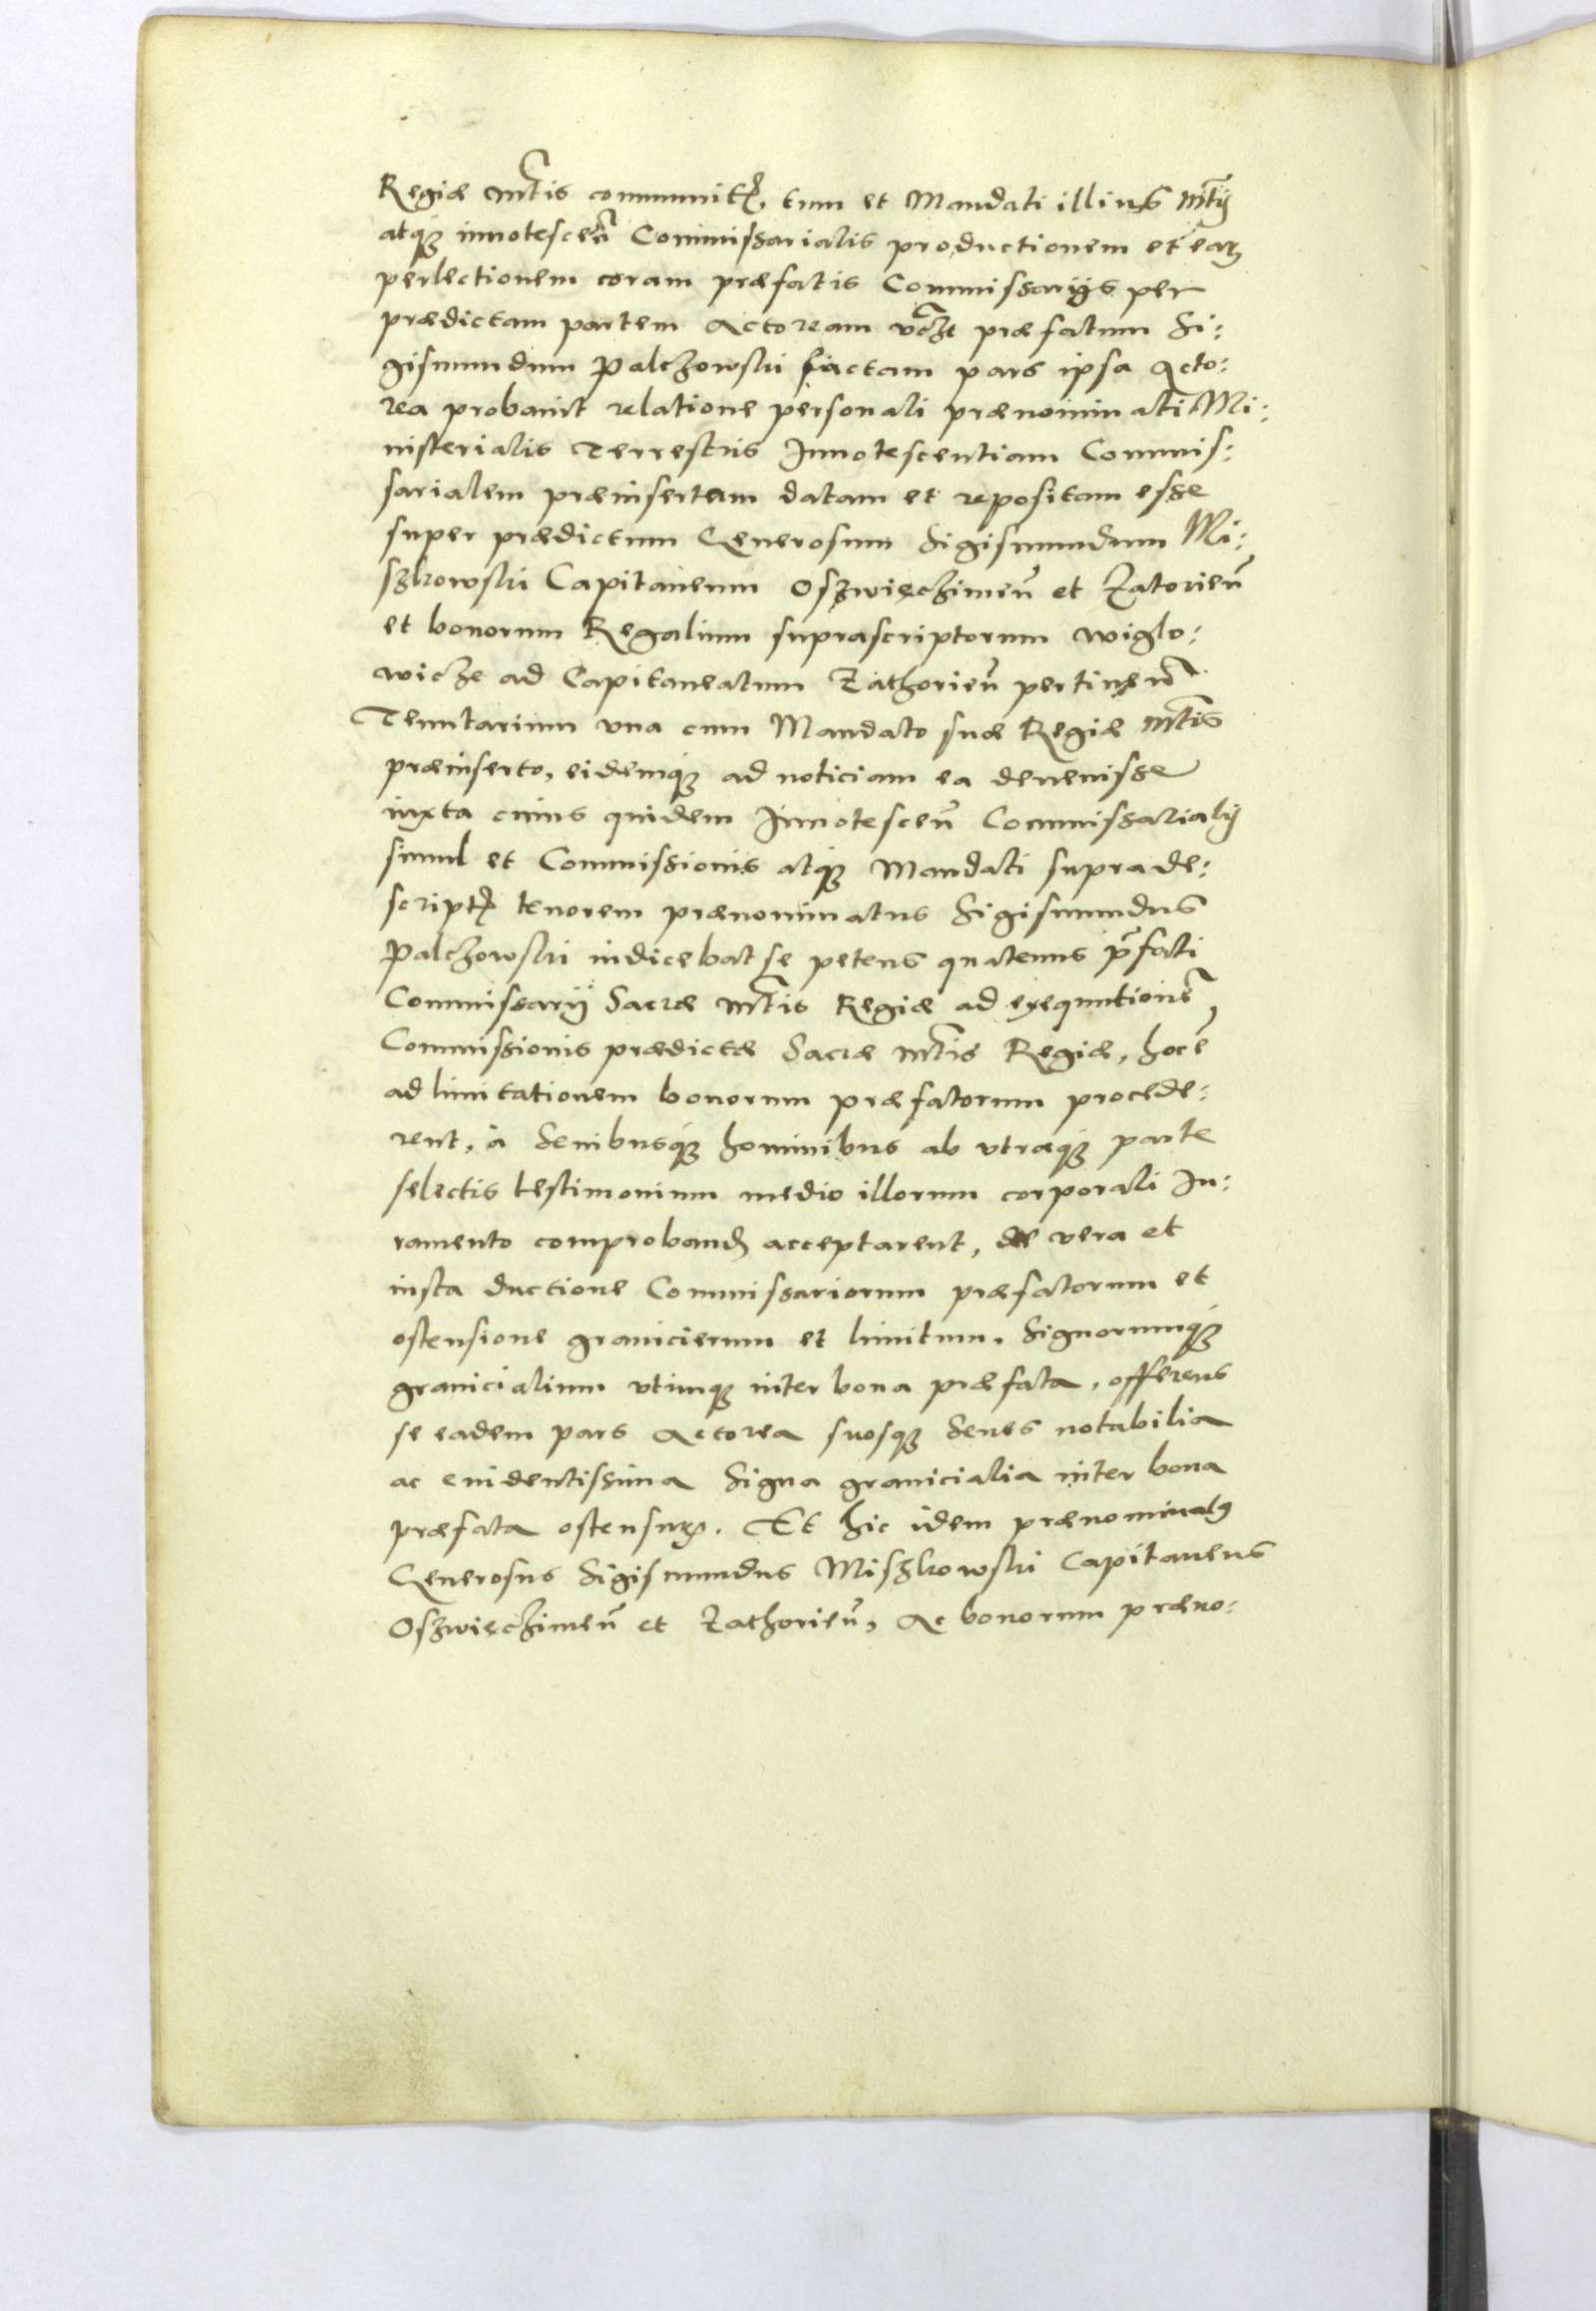 Regiæ Mtis communitr, tum et Mandati illius Mtis
atq̄ innotesceñ Commissarialis productionem et earū
perlectionem coram præfatis Commissarijs per
prædictam partem Actoream vcze præfatum Si:
gismundum Palczowski factam pars ipsa Acto:
rea probauit relatione personali prænominati Mi:
nisterialis Terrestris Innotescentiam Commis:
sarialem præinsertam datam et repositam esse
super prædictum Generosum Sigismundum Mi:
szkowski Capitaneum Oszwięczimeñ et Zatorieñ
et bonorum Regalium suprascriptorum Wiglo:
wicze ad Capitaneatum Zathorieñ pertineñ
Tenutarium vna cum Mandato suæ Regiæ Mtis
præinserto, eidemq̄ ad noticiam ea deuenisse
iuxta cuius quidem Innotesceñ Commissarialis
simul et Commissionis atq̄ Mandati suprade:
script tenorem prænominatus Sigismundus
Palczowski indicebat se petens quatenus pr̄fati
Commissarij Sacræ Mtis Regiæ ad exequutionē
Commissionis prædictæ Sacræ Mtis Regiæ, hoc ē
ad limitationem bonorum præfatorum procede:
rent, à Senibusq̄ hominibus ab vtraq̄ parte
selectis testimonium medio illorum corporali Iu:
ramento comproband acceptarent, de vera et
iusta ductione Commissariorum præfatorum et
ostensione granicierum et limitum, Signorumq̄
granicialium vtrinq̄ inter bona præfata, offerens
se eadem pars Actorea suosq̄ Senes notabilia
ac euidentissima Signa granicialia inter bona
præfata ostensurū. Et hic idem prænominatus
Generosus Sigismundus Miszkowski Capitaneus
Oszwięczimeñ et Zathorieñ, Ac bonorum præno: